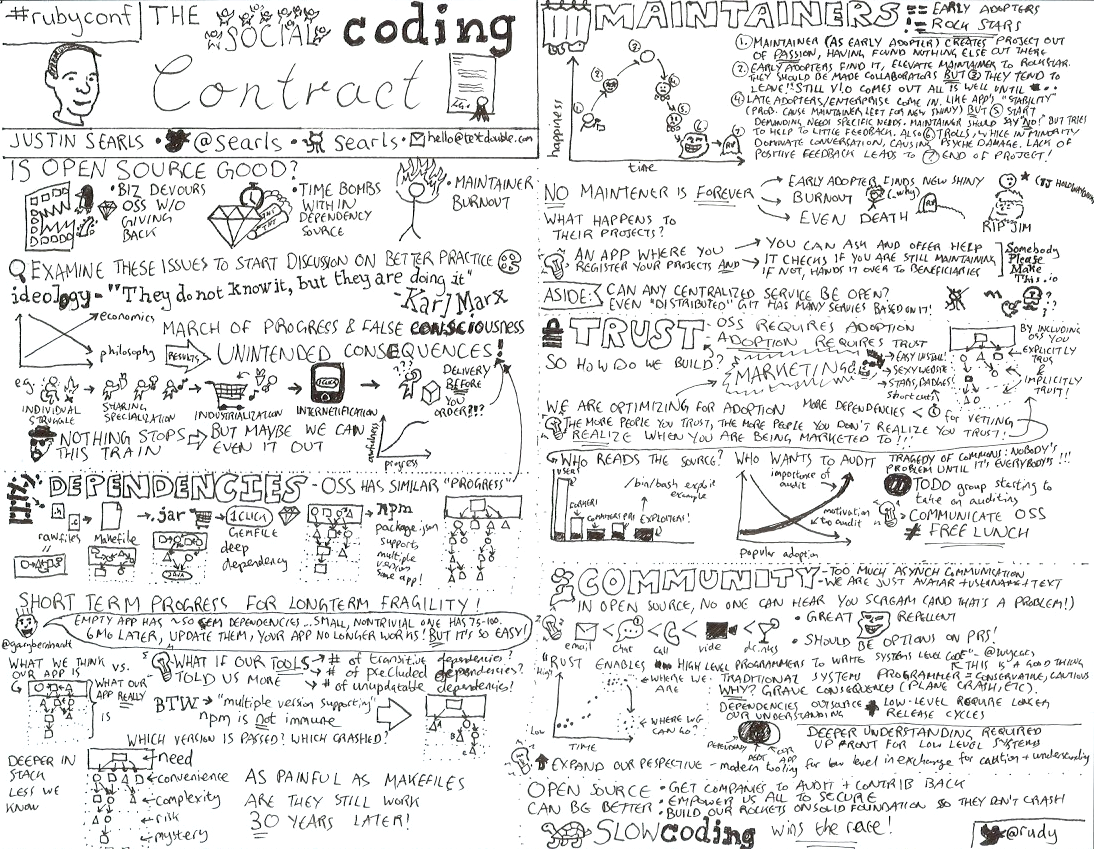 #rubyconf
THE
SOCIAL
coding
Contract
JUSTIN SEARLS • @searls • searls • hello@testdouble.com
IS OPEN SOURCE GOOD?
• BIZ DEVOURS
OSS W/O
GIVING
BACK
• TIME BOMBS
WITHIN
DEPENDENCY
SOURCE
• MAINTAINER
BURNOUT
EXAMINE THESE ISSUES TO START DISCUSSION ON BETTER PRACTICE
ideology - "They do not know it, but they are doing it"
- Karl Marx
economics
philosophy
MARCH OF PROGRESS & FALSE consciousness
RESULTS
UNINTENDED CONSEQUENCES!
eg.
INDIVIDUAL
STRUGGLE
SHARING
SPECIALIZATION
INDUSTRIALIZATION
1CLICK
INTERNETIFICATION
???
DELIVERY
BEFORE
YOU
ORDER?!?
NOTHING STOPS
THIS TRAIN
BUT MAYBE WE CAN
EVEN IT OUT
awfulness
progress
DEPENDENCIES - OSS HAS SIMILAR "PROGRESS"
rawfiles
Makefile
.jar
JAVA
1CLICK
GEMFILE
deep
dependency
npm
package.json
supports
multiple
versions
same app!
SHORT TERM PROGRESS FOR LONGTERM FRAGILITY!
@garybernhardt
EMPTY APP HAS ~50 GEM DEPENDENCIES... SMALL, NONTRIVIAL ONE HAS 75-100.
6MO LATER, UPDATE THEM, YOUR APP NO LONGER WORKS! BUT IT'S SO EASY!
WHAT WE THINK
OUR APP IS
VS.
WHAT OUR
APP REALLY
IS
WHAT IF OUR TOOLS
TOLD US MORE
# of transitive dependencies?
# of precluded dependencies?
# of unupdatable dependencies!
BTW → "multiple version supporting"
npm is not immune
WHICH VERSION IS PASSED? WHICH CRASHED?
DEEPER IN
STACK
LESS WE
KNOW
need
convenience
complexity
risk
mystery
AS PAINFUL AS MAKEFILES
ARE THEY STILL WORK
30 YEARS LATER!
MAINTAINERS
== EARLY ADOPTERS
= ROCK STARS
happiness
time
RIP
1. MAINTAINER (AS EARLY ADOPTER) CREATES PROJECT OUT
OF PASSION, HAVING FOUND NOTHING ELSE OUT THERE
2. EARLY ADOPTERS FIND IT, ELEVATE MAINTAINER TO ROCKSTAR.
THEY SHOULD BE MADE COLLABORATORS BUT 3 THEY TEND TO
LEAVE!! STILL V1.0 COMES OUT ALL IS WELL UNTIL...
4. LATE ADOPTERS/ENTERPRISE COME IN. LIKE APP'S "STABILITY"
(PROB. CAUSE MAINTAINER LEFT FOR NEW SHINY) BUT 5 START
DEMANDING NEEDS SPECIFIC NEEDS. MAINTAINER SHOULD SAY "NO!" BUT TRIES
TO HELP TO LITTLE FEEDBACK. ALSO 6 TROLLS, WHILE IN MINORITY
DOMINATE CONVERSATION, CAUSING PSYCHE DAMAGE. LACK OF
POSITIVE FEEDBACK LEADS TO 7 END OF PROJECT!
NO MAINTENER IS FOREVER
EARLY ADOPTER FINDS NEW SHINY
BURNOUT
(_why)
EVEN DEATH
RIP
RIP JIM
WHAT HAPPENS TO
THEIR PROJECTS?
AN APP WHERE YOU
REGISTER YOUR PROJECTS AND
YOU CAN ASK AND OFFER HELP
IT CHECKS IF YOU ARE STILL MAINTAINING
IF NOT, HANDS IT OVER TO BENEFICIARIES
Somebody
Please
Make
This.io
ASIDE: CAN ANY CENTRALIZED SERVICE BE OPEN?
EVEN "DISTRIBUTED" GIT HAS MANY SERVICES BASED ON IT!
TRUST - OSS REQUIRES ADOPTION
ADOPTION REQUIRES TRUST
SO HOW DO WE BUILD?
MARKETING
EASY INSTALL!
SEXY WEBSITE
STARS, BADGES
shortcuts!
BY INCLUDING
OSS YOU
EXPLICITLY
TRUST
&
IMPLICITLY
TRUST!
WE ARE OPTIMIZING FOR ADOPTION
MORE DEPENDENCIES < for VETTING
THE MORE PEOPLE YOU TRUST, THE MORE PEOPLE YOU DON'T REALIZE YOU TRUST!
REALIZE WHEN YOU ARE BEING MARKETED TO!!!
WHO READS THE SOURCE?
USERS
EXPLOITERS!
/bin/bash exploit
example
WHO WANTS TO AUDIT
importance of
audit
motivation
to audit
Popular adoption
TRAGEDY OF COMMONS: NOBODY'S
PROBLEM UNTIL IT'S EVERYBODY'S!!!
TODO group starting to
take on auditing
COMMUNICATE OSS
≠ FREE LUNCH
COMMUNITY - TOO MUCH ASYNCH COMMUNICATION
- WE ARE JUST AVATAR + USERNAME + TEXT
IN OPEN SOURCE, NO ONE CAN HEAR YOU SCREAM (AND THAT'S A PROBLEM!)
email < chat < call < video < drinks
• GREAT REPELLENT
• SHOULD BE OPTIONS ON PRS!
"RUST ENABLES HIGH LEVEL PROGRAMMERS TO WRITE SYSTEMS LEVEL CODE" - @wycats
THIS IS A GOOD THING
High
Low
TIME
WHERE WE
ARE
WHERE WE
CAN GO!
TRADITIONAL SYSTEMS PROGRAMMER = CONSERVATIVE, CAUTIOUS
WHY? GRAVE CONSEQUENCES (PLANE CRASH, ETC).
DEPENDENCIES OUTSOURCE
OUR UNDERSTANDING
LOW-LEVEL REQUIRE LONGER
RELEASE CYCLES
DEEPER UNDERSTANDING REQUIRED
UP FRONT FOR LOW LEVEL SYSTEMS
EXPAND OUR PESPECTIVE - modern tooling for low level in exchange for caution + understanding
OPEN SOURCE
CAN BE BETTER
• GET COMPANIES TO AUDIT + CONTRIB BACK
• EMPOWER US ALL TO SECURE
• BUILD OUR ROCKETS ON SOLID FOUNDATION SO THEY DON'T CRASH
SLOW coding wins the race!
@rudy